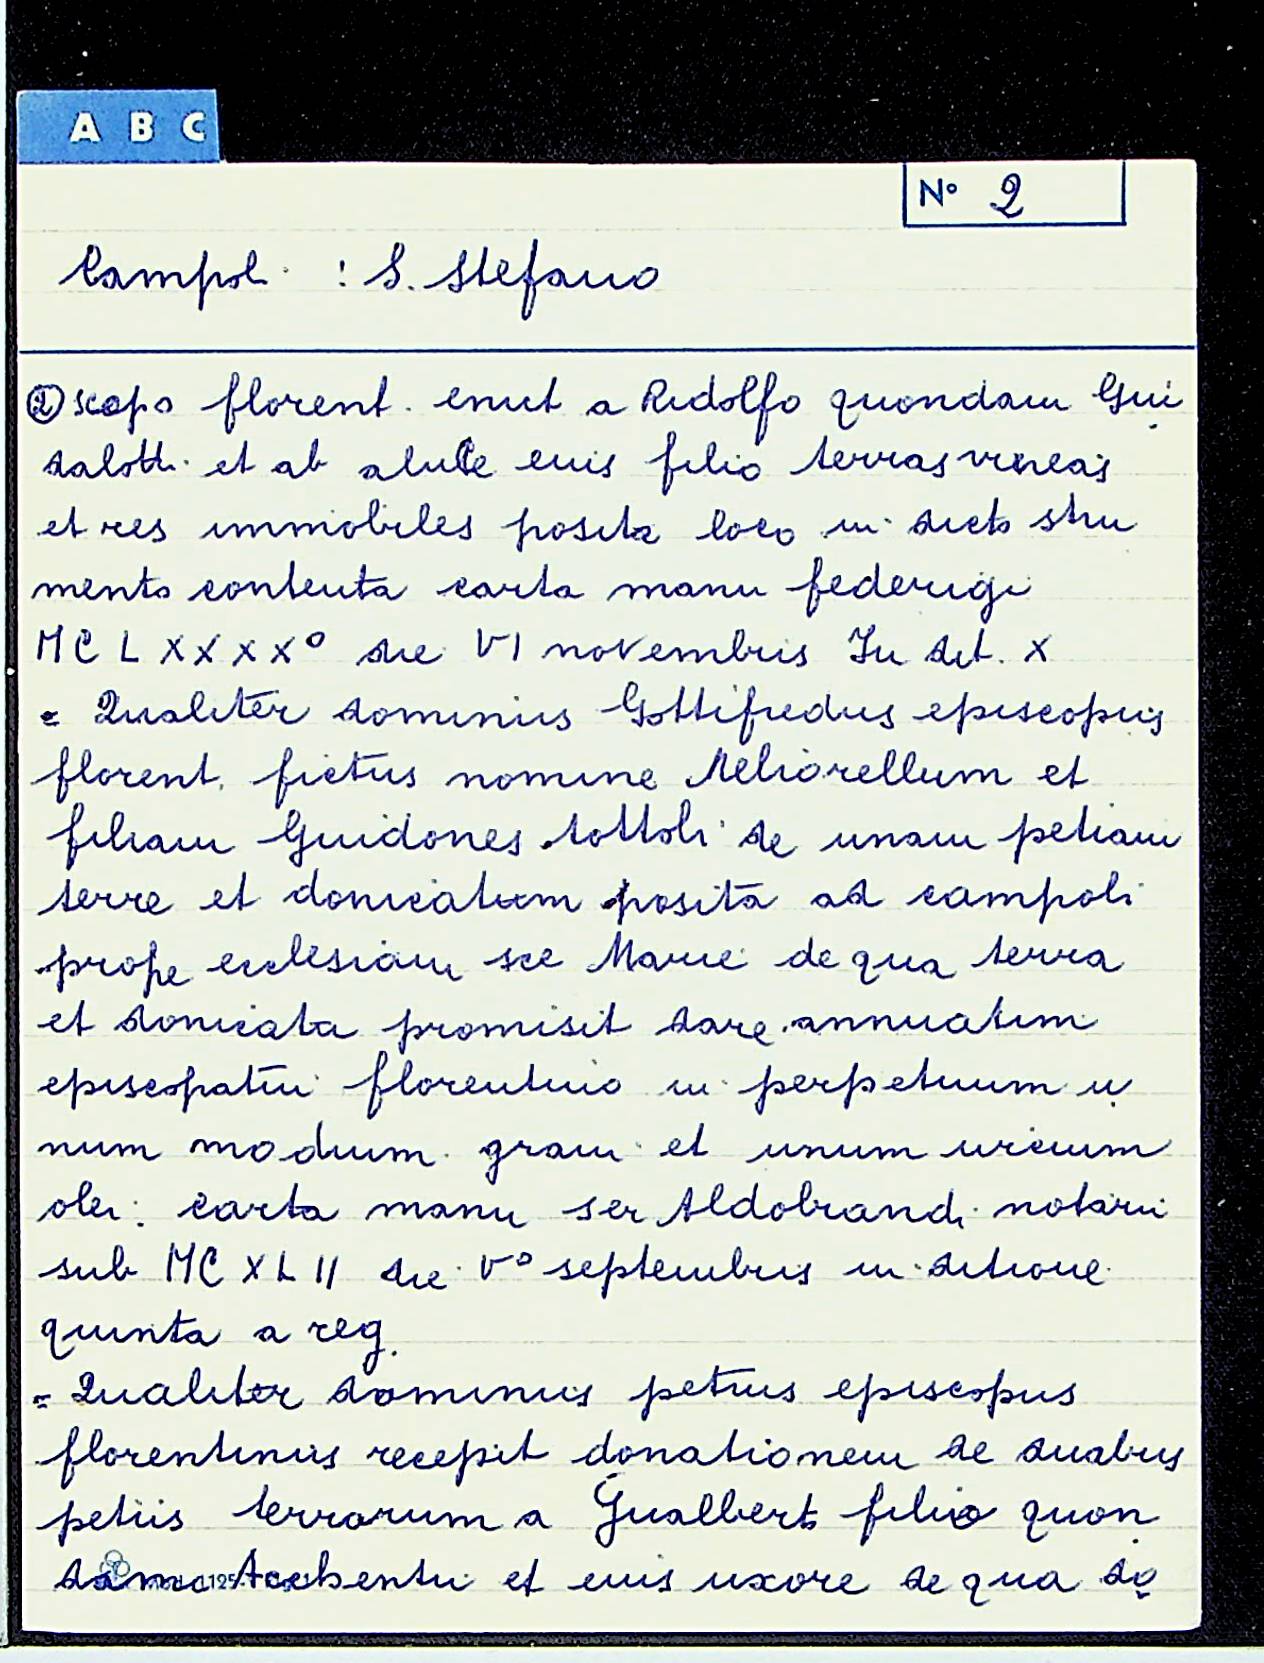 A B C
N° 2
Campol. : S. Stefano
② scopo florent. emit a Ridolfo quondam Gui
dalotti et ab eius filio terras vineas
et res immobiles posita loco in dicto stru
mento contenta carta manu federigi
MC L X X X X° die VI novembris In dit. X
= Qualiter dominus Gottifredus episcopus
florent. fictus nomine Meliorellum et
filiam Guidones tottoli de unam petiam
terre et donicatum posita ad campoli
prope ecclesiam sce Marie de qua terra
et donicata promisit dare annuatim
episcopatui florentino in perpetuum u
num modium grani et unum urcium
olei: carta manu ser Aldobrandi notarii
sub MC XL II die V° septembris in ditione
quinta a reg.
= Qualiter dominus petrus episcopus
florentinus recepit donationem de duabus
petiis terrarum a Gualberto filio quon
dam et eius uxore de qua do